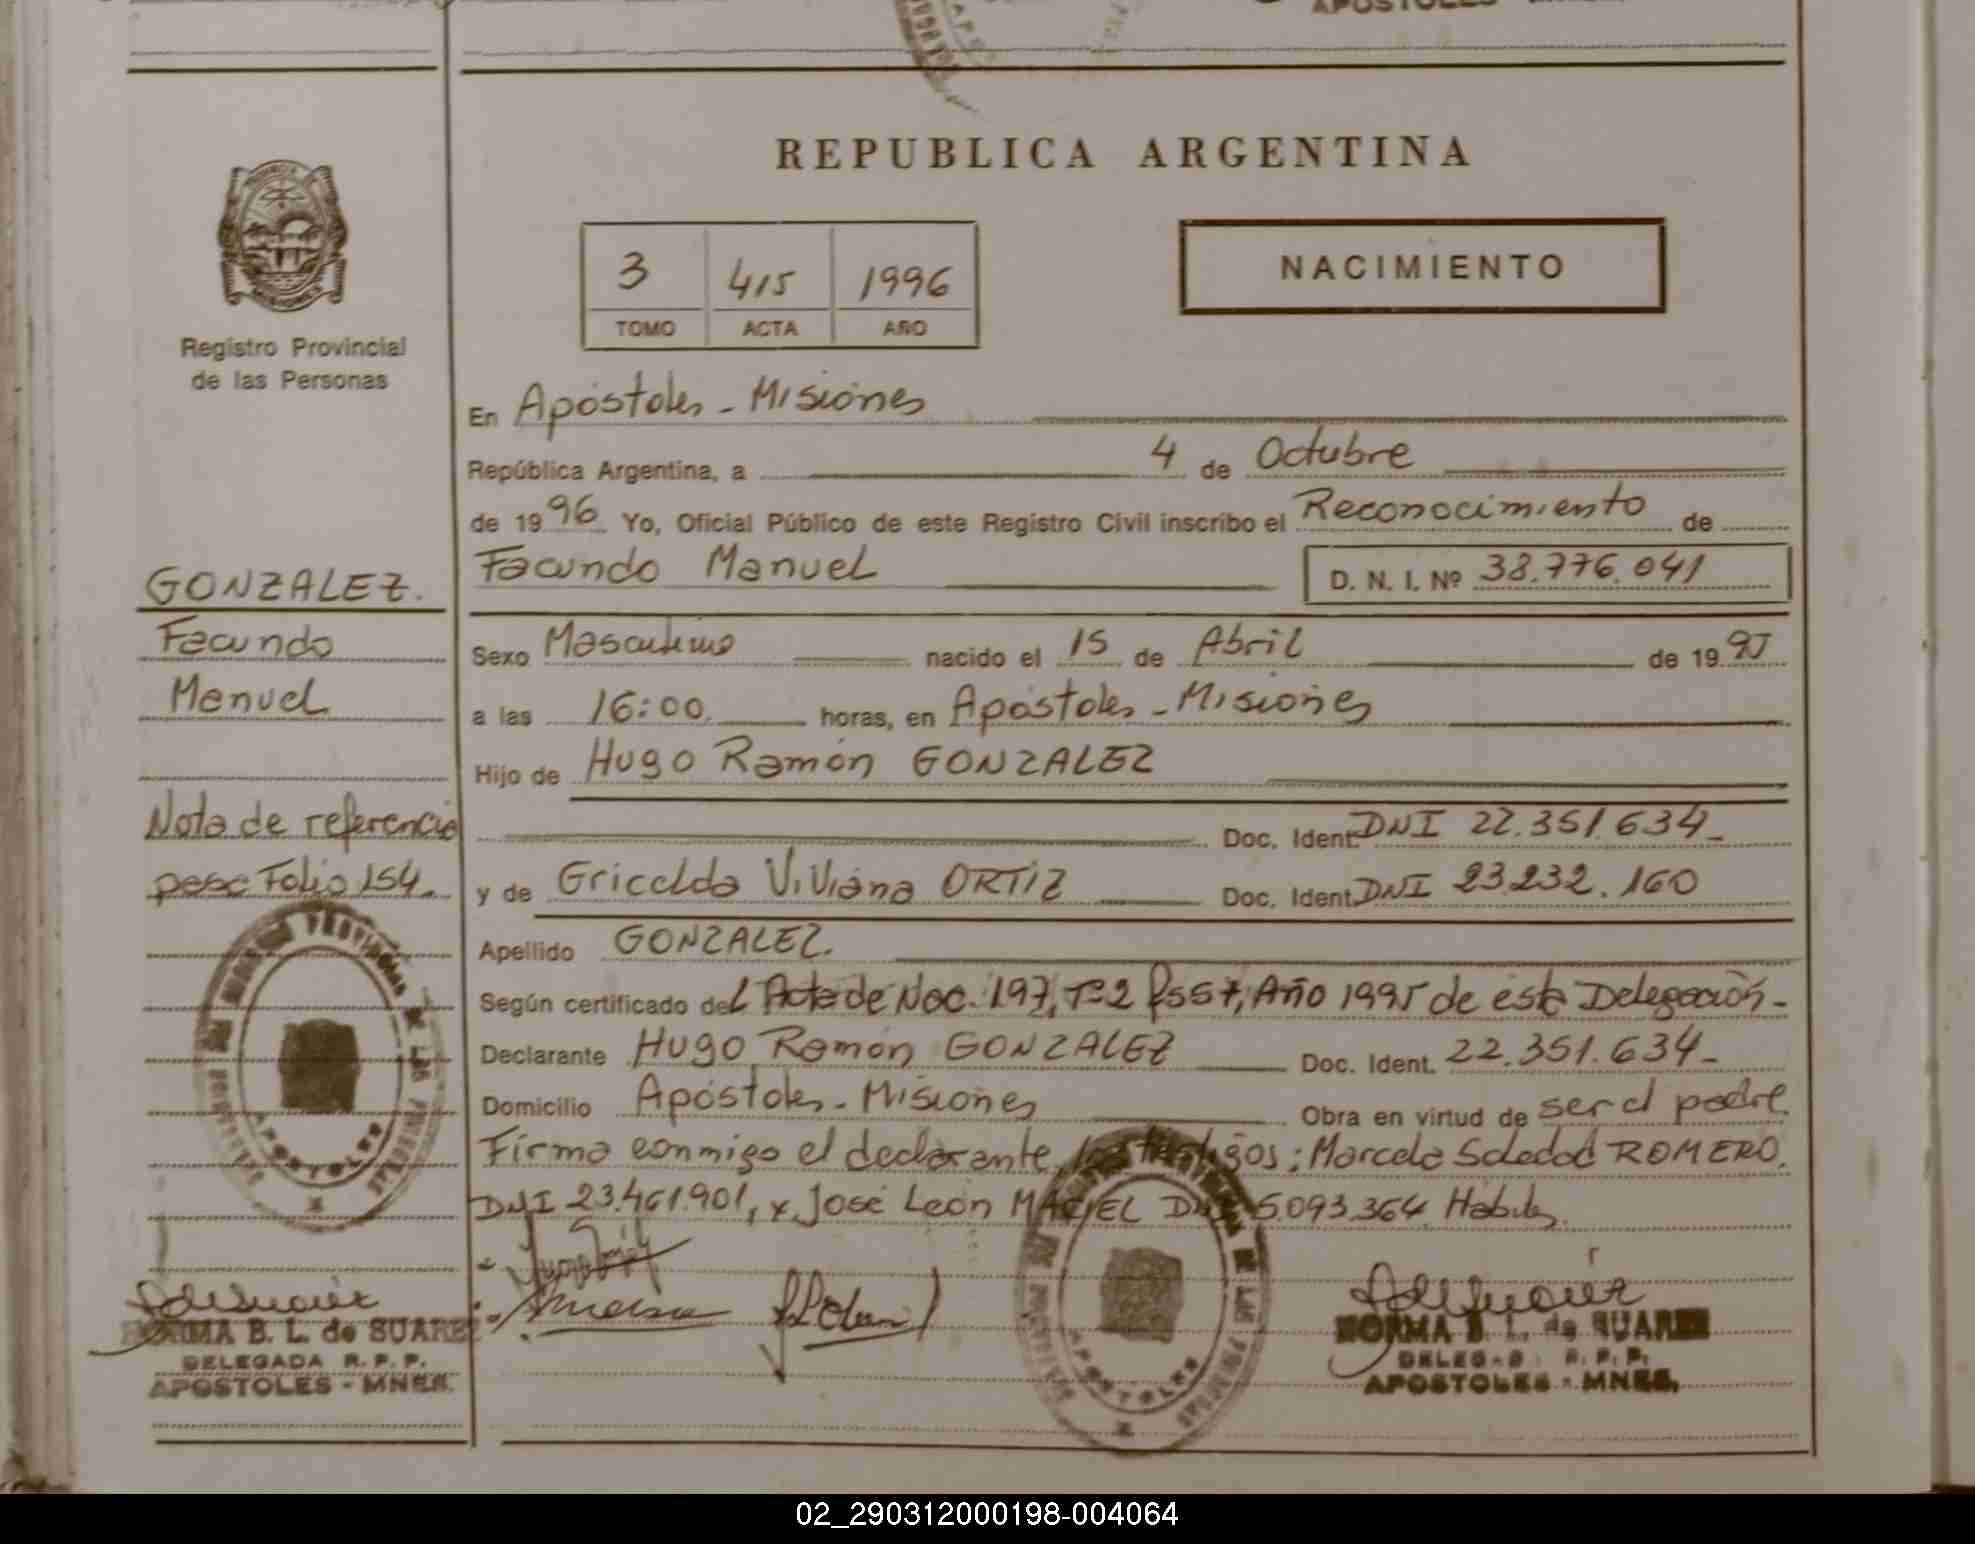 APOSTOLES
REPUBLICA ARGENTINA
3 415 1996
TOMO ACTA AÑO
NACIMIENTO
Registro Provincial
de las Personas
En Apóstoles - Misiones
República Argentina, a 4 de Octubre
de 1996 Yo, Oficial Público de este Registro Civil inscribo el Reconocimiento de
Facundo Manuel D. N. I. Nº 38.776.041
GONZALEZ.
Facundo
Manuel
Sexo Masculino nacido el 15 de Abril de 1995
a las 16:00 horas, en Apóstoles - Misiones
Hijo de Hugo Ramón GONZALEZ
Doc. Ident. DNI 22.351.634-
y de Gricelda Viviana ORTIZ Doc. Ident. DNI 23.232.160
Nota de referencia
pase Folio 154-
Apellido GONZALEZ.
Según certificado del Acta de Nac. 197, Tº2 fs57, Año 1995 de esta Delegación-
Declarante Hugo Ramón GONZALEZ Doc. Ident. 22.351.634-
Domicilio Apóstoles - Misiones Obra en virtud de ser el padre
Firma conmigo el declarante, los testigos: Marcela Soledad ROMERO.
DNI 23.461.901, y José León MACIEL DNI 5.093.364 Hábiles.
APOSTOLES
APOSTOLES
NORMA B. L. de SUAREZ
DELEGADA R. P. P.
APOSTOLES - MNES.
NORMA B. L. de SUAREZ
DELEGADA R. P. P.
APOSTOLES - MNES.
02_290312000198-004064